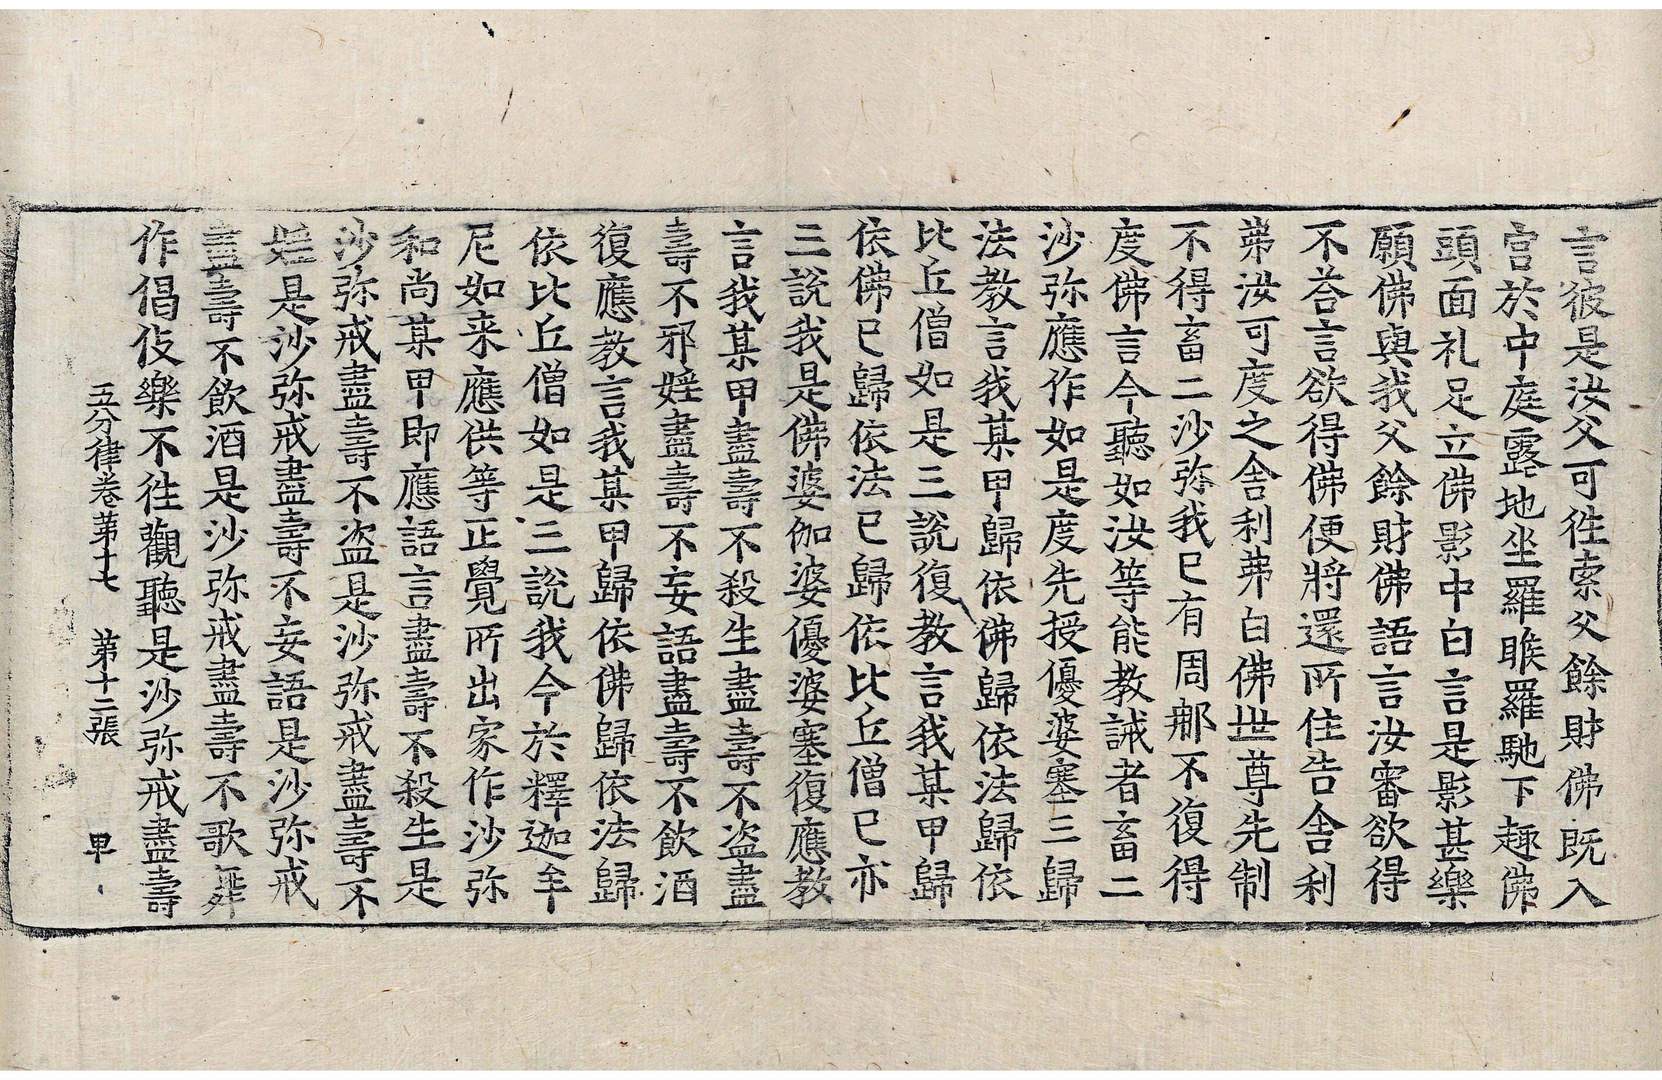 言彼是汝父可徃索父餘財佛旣入
宫於中庭露地坐羅睺羅馳下趣佛
頭面礼足立佛影中白言是影甚樂
願佛與我父餘財佛語言汝審欲得
不荅言欲得佛便將還所住告舍利
茀汝可度之舍利茀白佛世尊先制
不得畜二沙弥我已有周那不復得
度佛言今聽如汝等能教誡者畜二
沙弥應作如是度先授優婆塞三歸
法教言我某甲歸依佛歸依法歸依
比丘僧如是三說復教言我某甲歸
依佛已歸依法已歸依比丘僧已亦
三說我是佛婆伽婆優婆塞復應教
言我某甲盡壽不殺生盡壽不盜盡
壽不邪婬盡壽不妄語盡壽不飲酒
復應教言我某甲歸依佛歸依法歸
依比丘僧如是三說我今於釋迦牟
尼如来應供等正覺所出家作沙弥
和尚某甲即應語言盡壽不殺生是
沙弥戒盡壽不盜是沙弥戒盡壽不
婬是沙弥戒盡壽不妄語是沙弥戒
盡壽不飲酒是沙弥戒盡壽不歌舞
作倡伎樂不徃觀聽是沙弥戒盡壽
五分律卷第十七　第十二張　甲